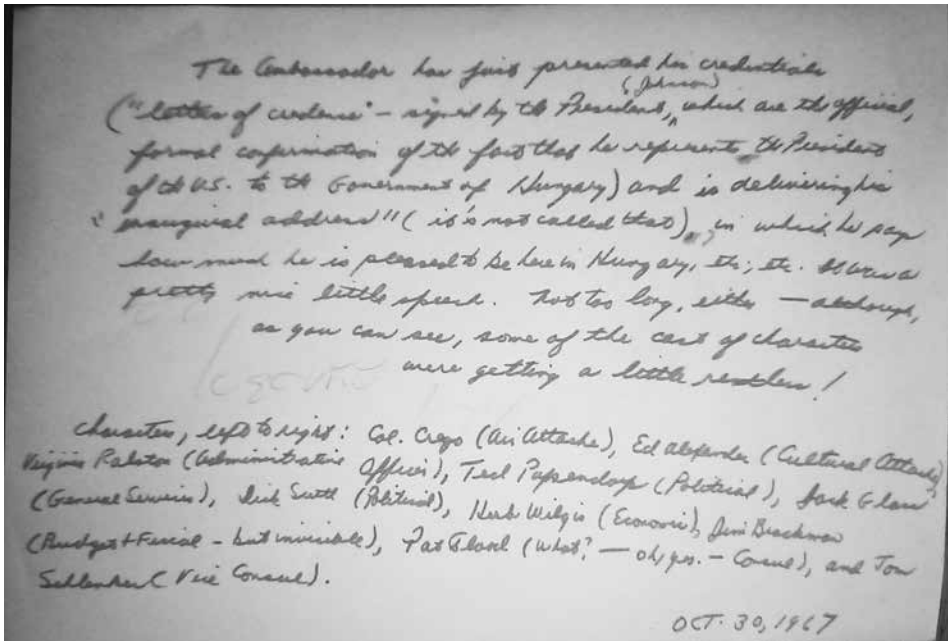 The Ambassador has just presented his credentials
(Johnson)
("letter of credence" – signed by the President, which are the official,
formal confirmation of the fact that he represents the President
of the U.S. to the Government of Hungary) and is delivering his
"inaugural address" (it's not called that), in which he says
how much he is pleased to be here in Hungary, etc; etc. It was a
pretty nice little speech. Not too long, either — although,
as you can see, some of the cast of characters
were getting a little restless!
Characters, left to right: Col. Crego (Air Attache), Ed Alexander (Cultural Attache)
Virginia Ralston (Administrative Officer), Ted Papendorp (Political), Jack
(General Services), Dick (Political), Herb Wilgis (Economic), Jim Brackman
(Budget & Fiscal – but invisible), Pat (What? — oh, yes. – Consul), and Tom
(Vice Consul).
OCT. 30, 1967